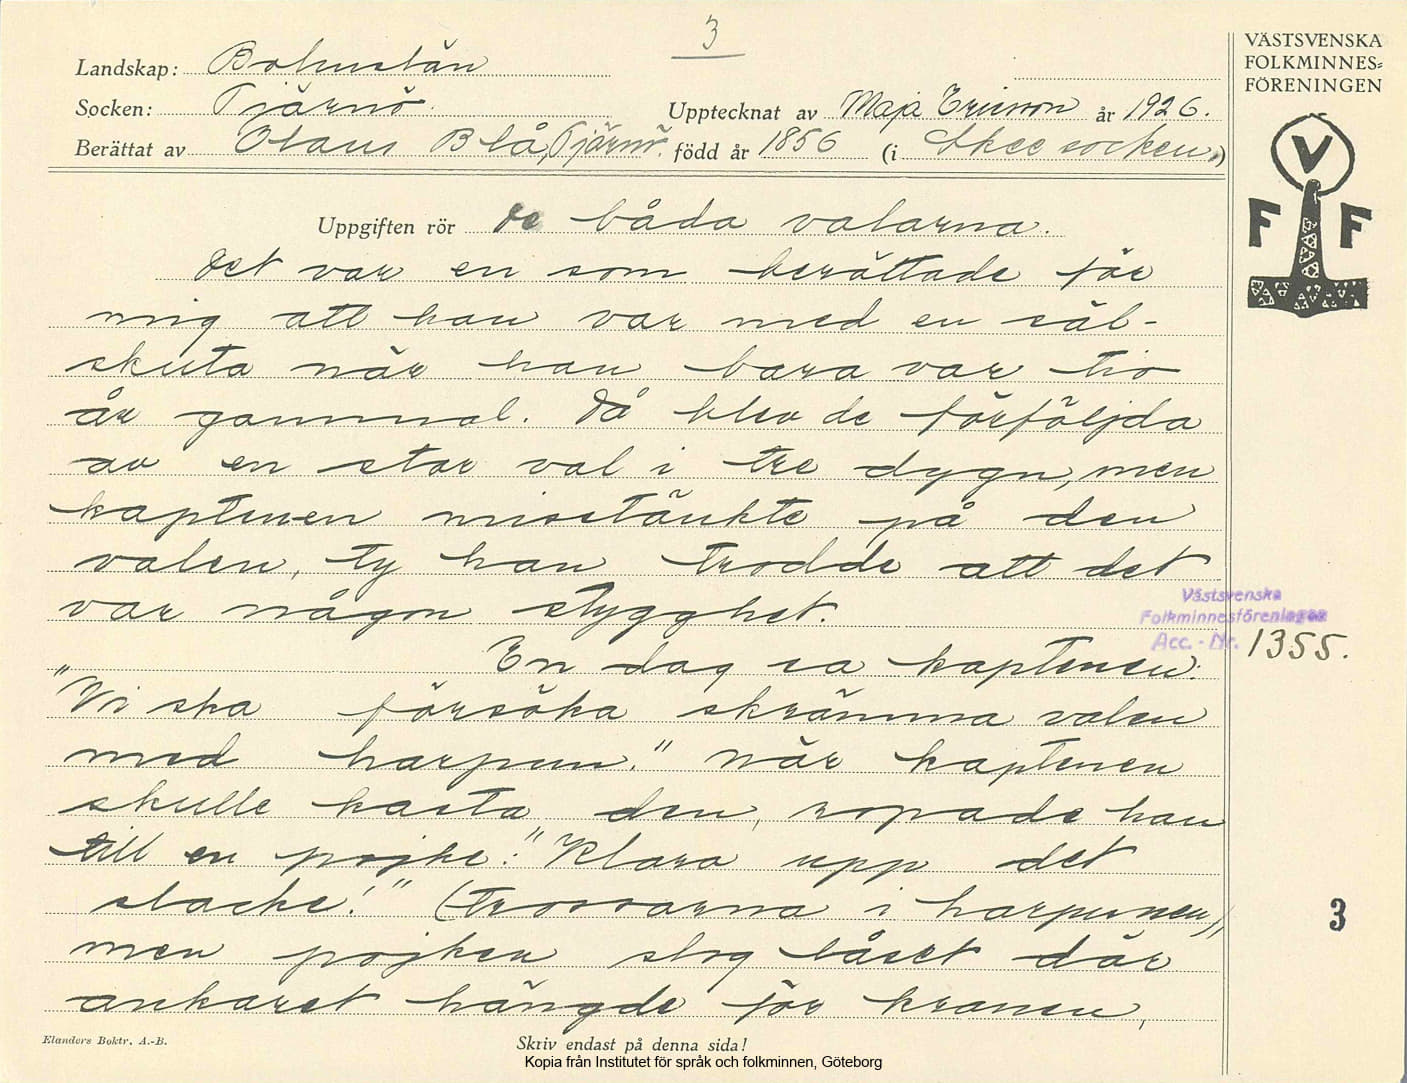 3
VÄSTSVENSKA
FOLKMINNES=
FÖRENINGEN
Landskap: Bohuslän
Socken: Tjärnö
Upptecknat av Maja Ericson år 1926.
Berättat av Olaus Blå, Tjärnö. född år 1856 (i Skee socken.)
V
F F
Uppgiften rör De båda valarna.
Det var en som berättade för
mig att han var med en säl-
skuta när han bara var tio
år gammal. Då blev de förföljda
av en stor val i tre dygn, men
kaptenen misstänkte på den
valen, ty han trodde att det
var någon stygghet.
Västsvenska
Folkminnesföreningen
Acc. - Nr. 1355.
En dag sa kaptenen:
"Vi ska försöka skrämma valen
med harpun." När kaptenen
skulle kasta den, ropade han
till en pojke: "Klara upp det
slacke!" (trossarna i harpunen),
men pojken slog låset där
ankaret hängde för kranen,
3
Elanders Boktr. A.-B.
Skriv endast på denna sida!
Kopia från Institutet för språk och folkminnen, Göteborg